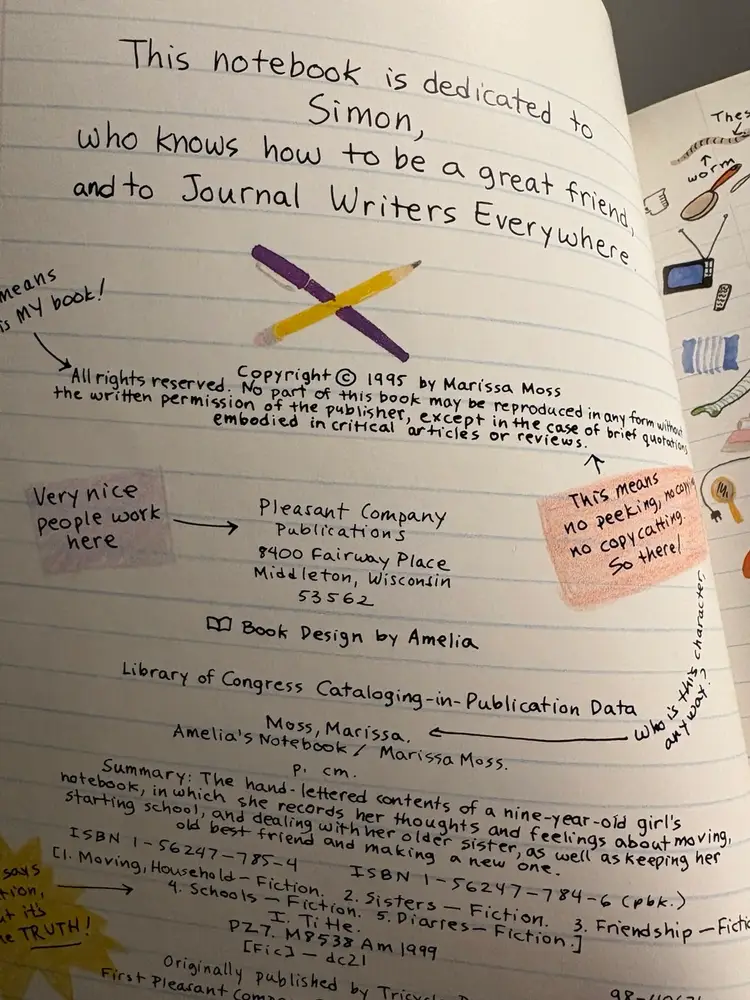 This notebook is dedicated to
Simon,
who knows how to be a great friend,
and to Journal Writers Everywhere.
means
is MY book!
Copyright © 1995 by Marissa Moss
All rights reserved. No part of this book may be reproduced in any form without
the written permission of the publisher, except in the case of brief quotations
embodied in critical articles or reviews.
Very nice
people work
here
Pleasant Company
Publications
8400 Fairway Place
Middleton, Wisconsin
53562
This means
no peeking, no copying
no copycatting.
So there!
Book Design by Amelia
Library of Congress Cataloging-in-Publication Data
Moss, Marissa.
who is this character,
anyway?
Amelia's Notebook / Marissa Moss.
p. cm.
Summary: The hand-lettered contents of a nine-year-old girl's
notebook, in which she records her thoughts and feelings about moving,
starting school, and dealing with her older sister, as well as keeping her
old best friend and making a new one.
ISBN 1-56247-785-4 ISBN 1-56247-784-6 (pbk.)
[1. Moving, Household — Fiction. 2. Sisters — Fiction. 3. Friendship — Fictio
4. Schools — Fiction. 5. Diaries — Fiction.]
I. Title.
PZ7. M8538 Am 1999
[Fic] — dc21
says
tion,
t it's
e TRUTH!
Originally published by Tricycle
First Pleasant Comp
worm